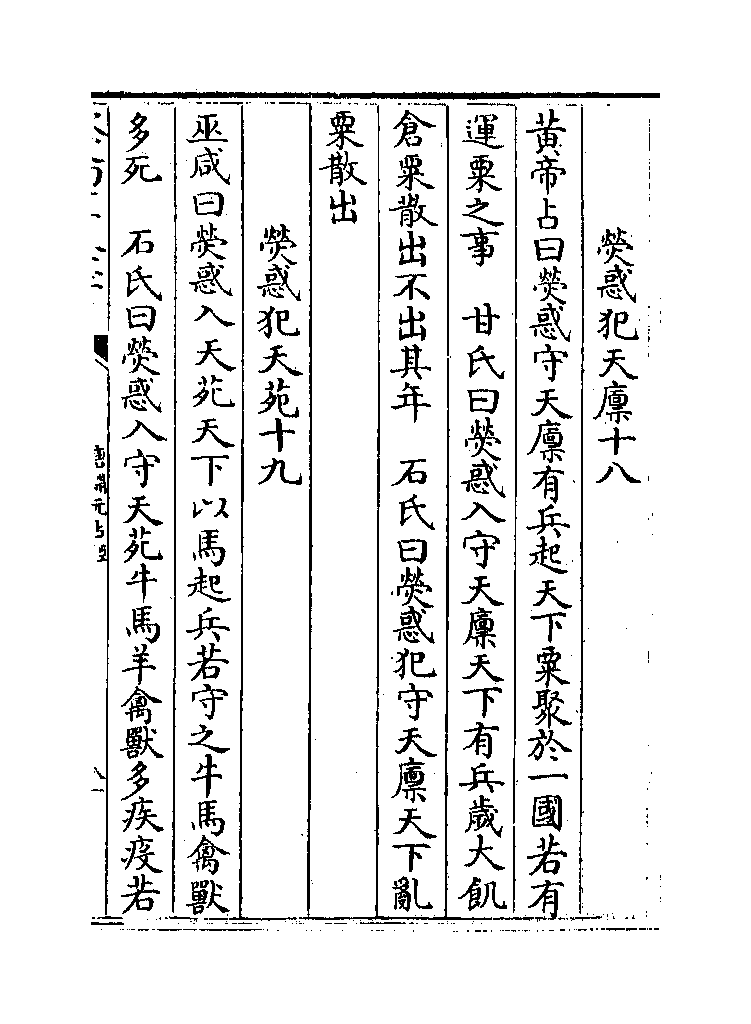 熒惑犯天廪十八
黄帝占曰熒惑守天廪有兵起天下粟聚於一國若有
運粟之事　甘氏曰熒惑入守天廪天下有兵歲大飢
倉粟散出不出其年　石氏曰熒惑犯守天廪天下亂
粟散出
熒惑犯天苑十九
巫咸曰熒惑入天苑天下以馬起兵若守之牛馬禽獸
多死　石氏曰熒惑入守天苑牛馬羊禽獸多疾疫若
唐開元占經